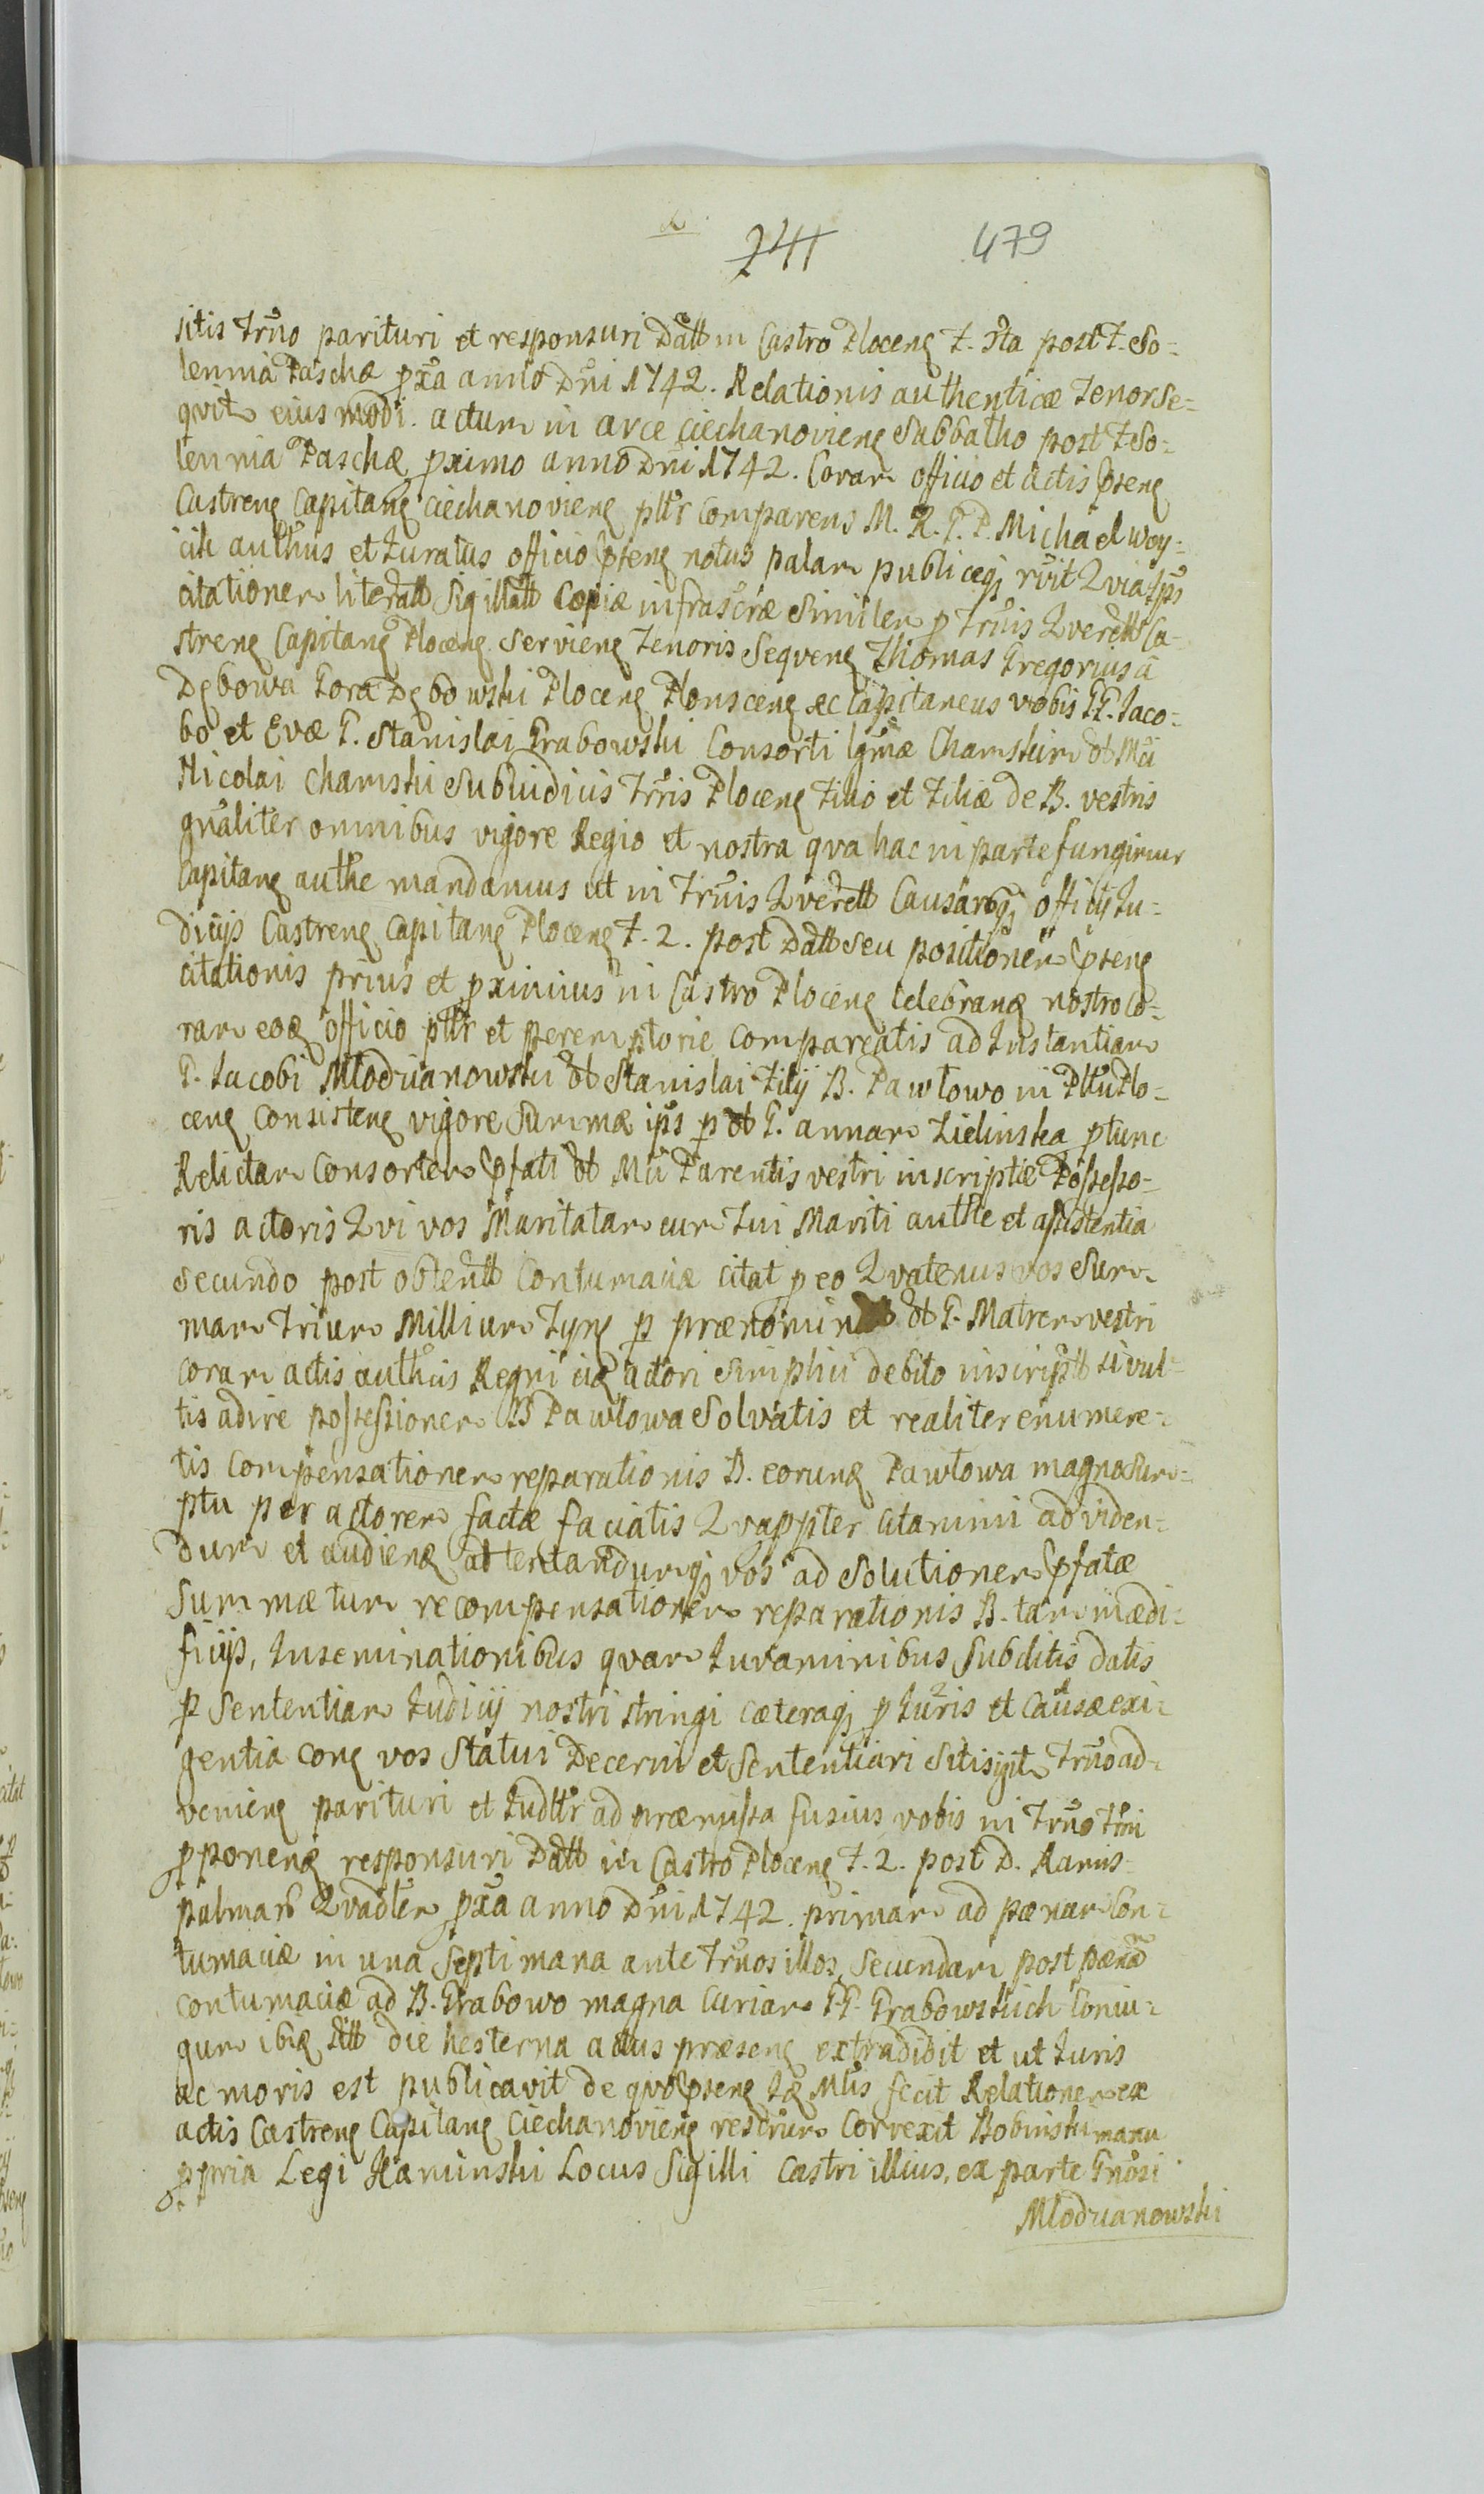 241 479
sitis Trno parituri et responsuri Datt in Castro Plocens F. 3ta post F. So-
lennia Paschæ pxa anno Dni 1742. Relationis authenticæ Tenor se-
qvitr eius modi. actum in arce Ciechanoviens Sabbatho post F. So-
lennia Paschæ pximo anno Dni 1742. Coram officio et actis Ptsens
Castrens Capitans Ciechanoviens pltr Comparens M. R. T. P. Michael Woy-
cik authus et Juratus officio Ptsens notus palam publiceq rvit Qvia Ips
citationem literatt Sigillatt Copiæ infrascræ Similem p Trnis Qverett Ca-
strens Capitans Plocens Serviens Tenoris Seqvens Thomas Gregorius á
Dębowa Gora Dębowski Plocens Plonscens æc Capitaneus vobis GG. Jaco-
bo et Evæ G. Stanislai Grabowski Consorti lgmæ Chamskim ot Mci
Nicolai Chamski Subiudicis Trris Plocens Filio et Filiæ de B. vestris
gnaliter omnibus vigore Regio et nostra qva hac in parte fungimur
Capitans authe mandamus ut in Trnis Qverett Causarq officij Ju-
dicijs Castrens Capitans Plocens F. 2. post Datt seu positionem Ptsens
citationis prius et pximius in Castro Plocens Celebrans nostro Co-
ram eoq officio pltr et peremptorie compareatis ad Instantiam
G. Jacobi Młodzianowski ot Stanislai Filij B. Pawłowo in Pltu Plo-
cens Consistens vigore Summæ ips p ot G. annam Zielinska ptunc
Relictam Consortem Pfati ot Mci Parentis vestri inscriptæ Possesso-
ris actoris Qvi vos Maritatam cum Tui Mariti authe et assistentia
secundo post obtentt Contumaciæ citat p eo Qvatenus vos Sum-
mam Trium Millium Tyns p prænomin ot G. Matrem vestri
coram actis authcis Regni eiq actori Simplici debito inscriptt si vul-
tis adire possessionem B Pawłowa Solvatis et realiter enumere-
tis Compensationem reparationis B. eorund Pawłowa magno Sum-
ptu per actorem factæ faciatis Qvappter Citamini ad viden-
dum et audiend attentandumq vos ad Solutionem Pfatæ
Summæ tum recompensationem reparationis B. tam in ædi-
ficijs, Inseminationibus qvam Juvaminibus Subditis datis
p Sententiam Judicij nostri stringi cæteraq p Juris et Causæ exi-
gentia cons vos Statui Decerni et Sententiari Sitis igitr Trno ad-
veniens parituri et Judltr ad præmissa fusius vobis in Trno Tmi
pponend responsuri Datt in Castro Plocens F. 2. post D. Ramis
palmar Qvadler pxa anno Dni 1742. primam ad pænam Con-
tumaciæ in una Septimana ante Trnos illos, Secundam post pænam
contumaciæ ad B. Grabowo magna Curiam GG. Grabowskich Coniu-
gum ibiq Sitt die hesterna actus præsens extradidit et ut Juris
ac moris est publicavit de qvo Ptsens Iq Mtis fecit Relationem ex
actis Castrens Capitans Ciechanoviens rescrum Correxit Bobinski manu
ppria Legi Kaminski Locus Sigilli Castri illius, ex parte Gnosi
Młodzianowski